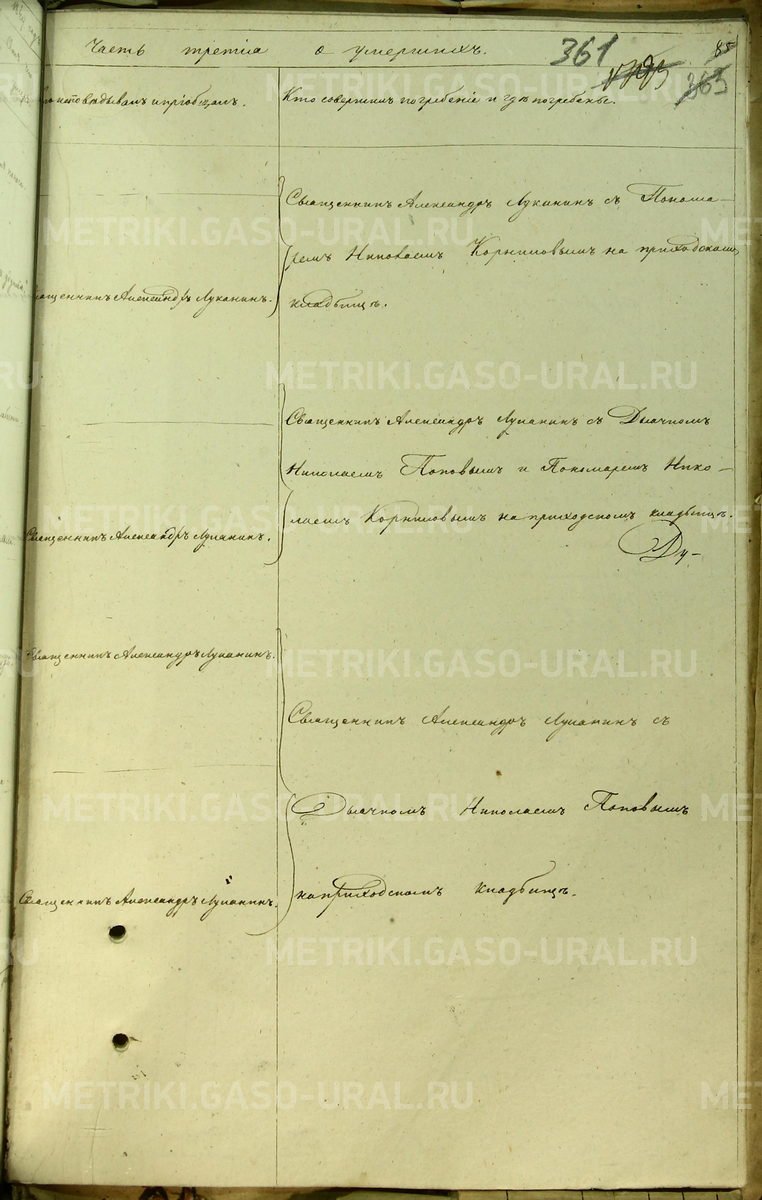 Часть третія о умершихъ.
361
85
363
Кто исповѣдывалъ и пріобщалъ.
Кто совершилъ погребеніе и гдѣ погребены.
Священникъ Александръ Луканинъ съ Понома-
ремъ Николаемъ Корниловымъ на приходскомъ
кладбищѣ.
Священникъ Александръ Луканинъ.
Священникъ Александръ Луканинъ съ Дьячкомъ
Николаемъ Поповымъ и Пономаремъ Нико-
лаемъ Корниловымъ на приходскомъ кладбищѣ.
Священникъ Александръ Луканинъ.
Ду-
Священникъ Александръ Луканинъ.
Священникъ Александръ Луканинъ съ
Дьячкомъ Николаемъ Поповымъ
на приходскомъ кладбищѣ.
Священникъ Александръ Луканинъ.
METRIKI.GASO-URAL.RU